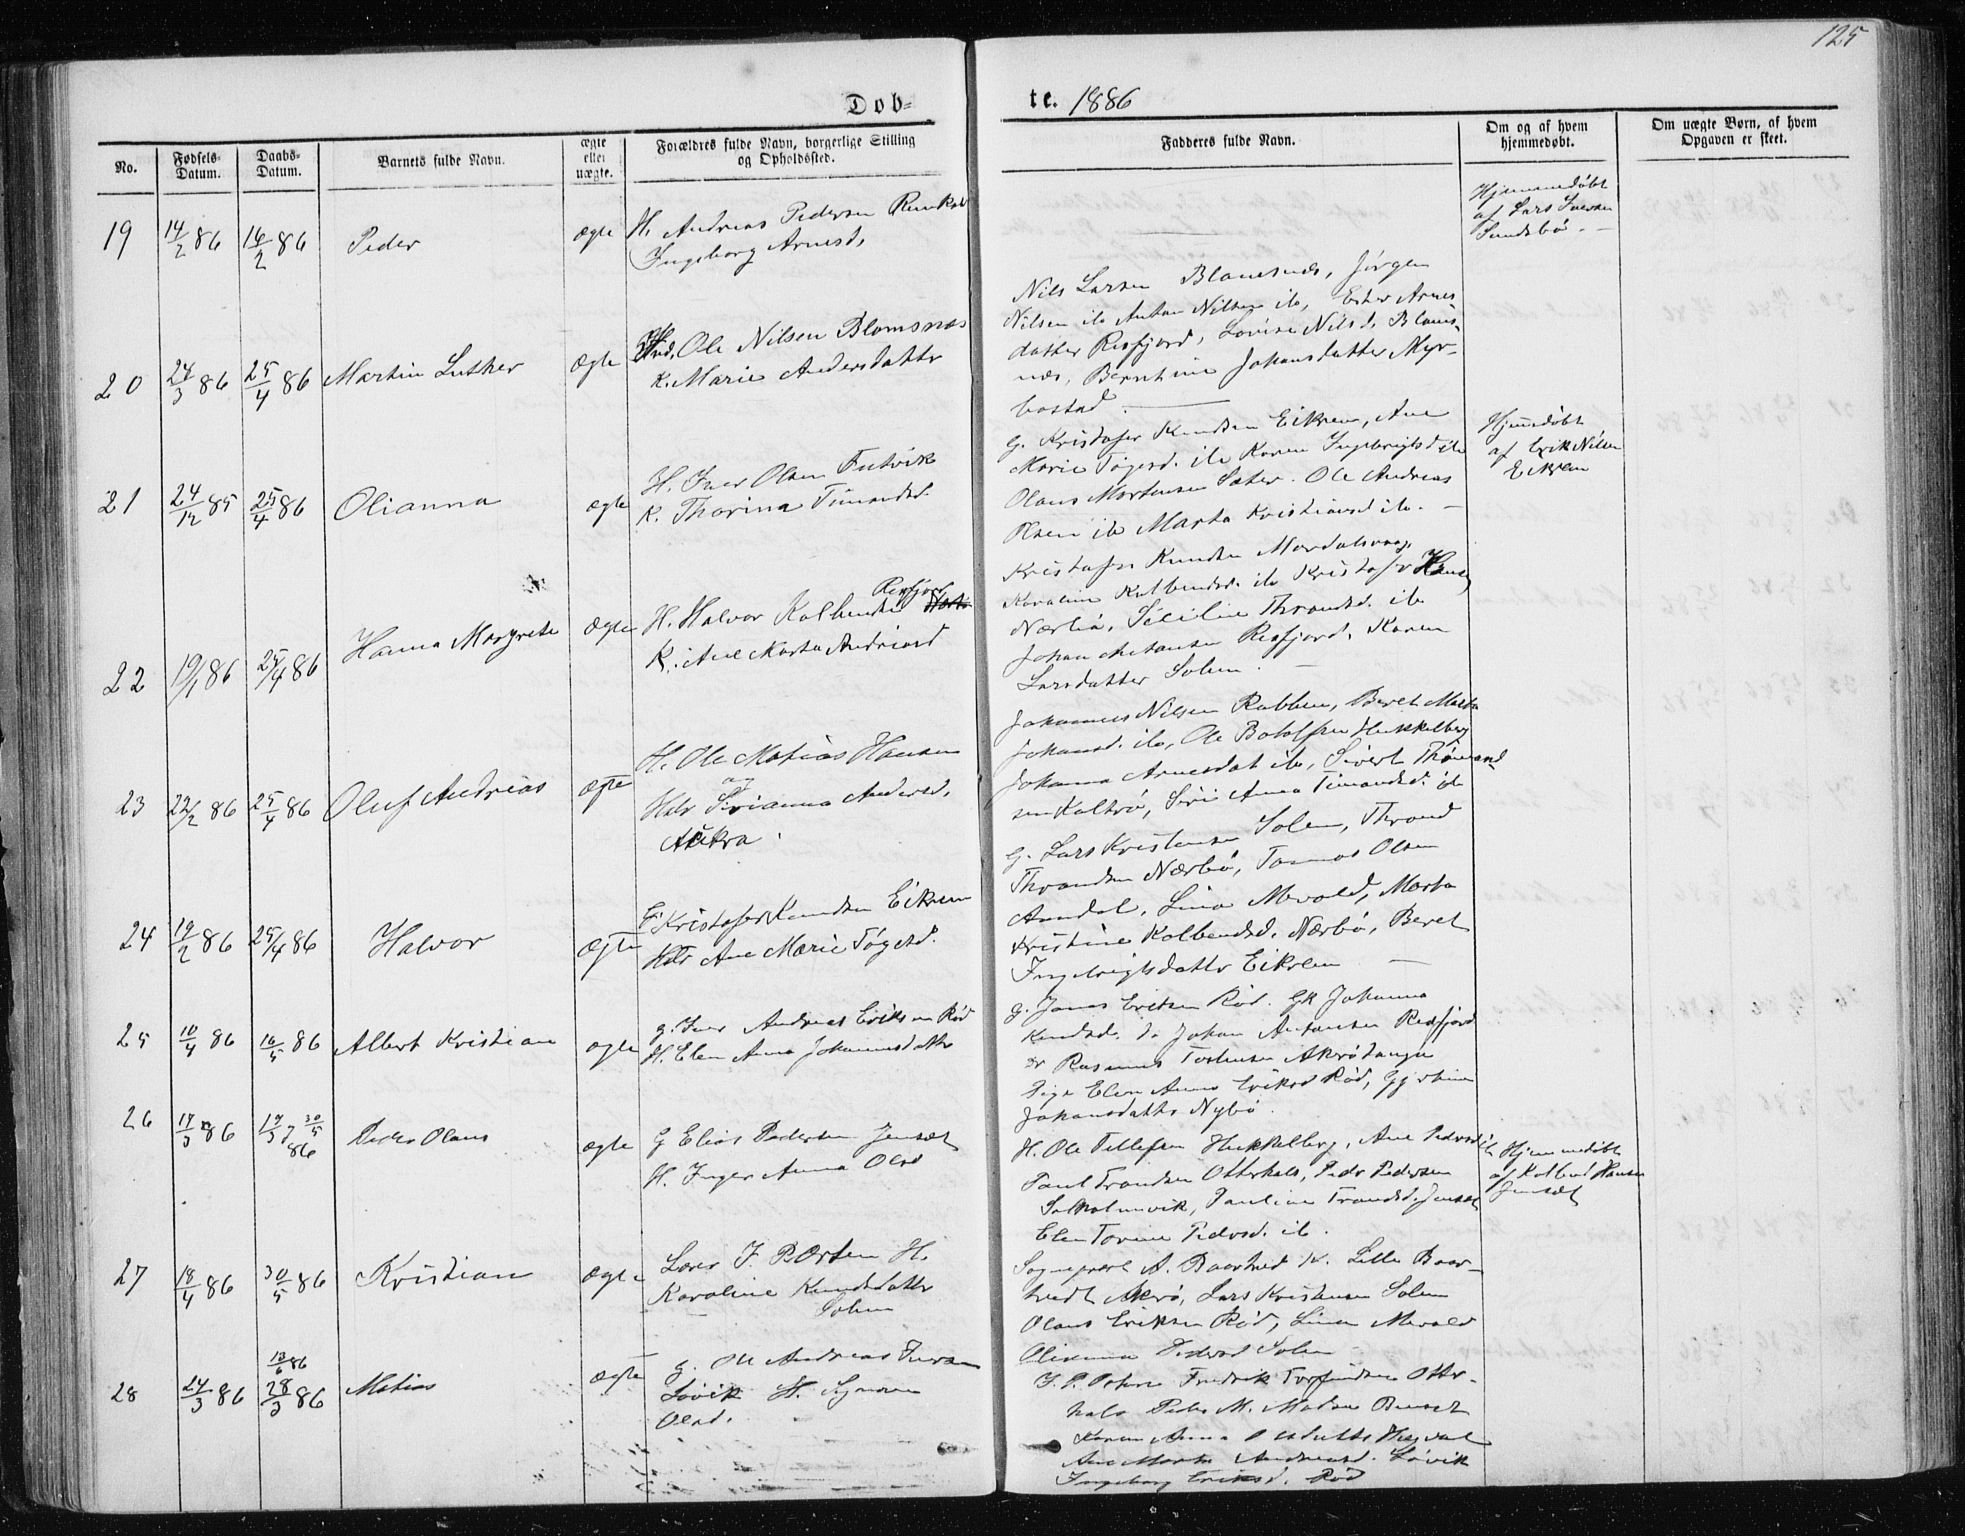 125
Døb-
te. 1886
No.
Fødsels-
Datum.
Daabs-
Datum.
Barnets fulde Navn.
ægte
eller
uægte.
Forældres fulde Navn, borgerlige Stilling
og Opholdssted.
Fadderes fulde Navn.
Om og af hvem
hjemmedøbt.
Om uægte Børn, af hvem
Opgaven er skeet.
19 14/2 86 16/2 86 Peder ægte H. Andreas Pedersen
Ingeborg Arnesd.
Hjemmedøbt
af Lars Iversen
Sundsbø
20 24/3 86 25/4 86 Martin Luther ægte Ole Nilsen Blomsnæs
K. Marie Andersdatter
Nils Larsen Blomsnæs, Jørgen
Nilsen ib Anton Nilsen ib, Ester Arnes-
datter Resfjord, Lovise Nilsd. Bloms-
næs, Berntine Johansdatter Myr-
bostad
21 24/12 85 25/4 86 Olianna ægte H. Iver Olsen
K. Thorina Timandsd.
G. Kristofer Knudsen Eikrem, Ane
Marie Tøgesd. ib Karen Ingebrigtsd ib
Olaus Mortensen Sæter. Ole Andreas
Olsen ib Marta Kristiansd ib.
Hjemedøbt
af Erik Nilsen
Eikrem
22 19/1 86 25/4 86 Hanna Margrete ægte H. Halvor Kolbensen Resfjord
K. Ane Marta Andriasd
Kristofer Knudsen Mordalsvaag
Karoline Kolbensd. ib Kristofer Hansen
Nærbø, Sicilie Throndsd. ib
Johan Antonsen Resfjord, Karen
Larsdatter Solem.
23 22/2 86 25/4 86 Oluf Andrias ægte H. Ole Matias Hansen
og
Hdr Sirianna Andersd.
Aukra.
Johannes Nilsen Rabben, Beret Marta
Johansd. ib, Ole Botolfsen Hukkelberg
Johanna Arnesdat ib, Sivert
Anna Timandsd. ib
24 19/2 86 25/4 86 Halvor ægte G. Kristofer Knudsen Eikrem
Hdr Ane Marie Tøgesd.
G. Lars Kristensen Solem, Thrond
Throndsen Nærbø, Tomas Olsen
Aandal, Lina Mevold, Marta
Kristine Kolbendsd. Nærbø, Beret
Ingebrigtsdattr Eikrem
25 10/4 86 16/5 86 Albert Kristian ægte g. Iver Andreas Eriksen Rød
H. Elen Anna Johannesdattr
G. Jonas Eriksen Rød. GK Johanna
Knudsd. Johan Antonsen Resfjord
Rasmus Torstensen Akrøtangen
Pige Elen Anna Eriksd Rød,
Johansdattr Nybø.
26 14/3 86 19/3 30/5 86 Peder Olaus ægte G Elias Pedersen Jenset
H. Inger Anna Olsd
H. Ole Tellefsen Hukkelberg, Ane Pedersd ib
Paul Trondsen Otterhals, Peder Pedersen
Pauline Trondsd. Jenset
Elen Torine Pedersd. ib.
Hjemmedøbt
af Kolbend Hansen
Jenset
27 18/4 86 30/5 86 Kristian ægte Lærer J. P. Orten H.
Karoline Knudsdattr
Solem
Sogneprest A. Baarstvedt Lilla Baar-
tvedt Akrø, Lars Kristensen Solem
Olaus Eriksen Rød, Lina Mevold
Olianna Pedersd Solem
28 24/3 86 13/6 86 28/3 86 Matias ægte g. Ole Andreas Iversen
Løvik H. Synneve
Olsd.
Fredrik Torfindsen Otter-
hals Peder M. Madsen
Karen Anna
Ane Marta Andreasd. Løvik
Ingeborg Eriksd. Rød